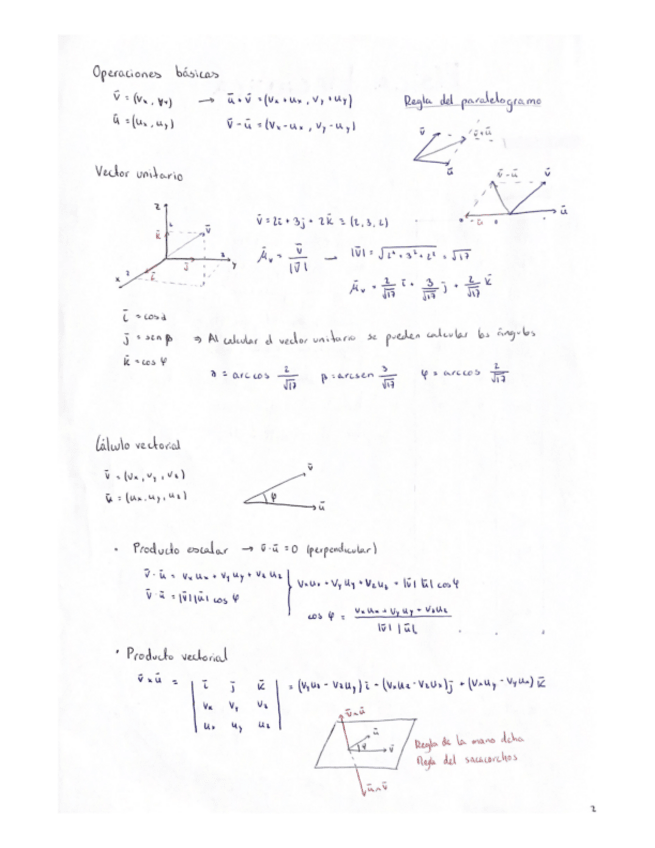 Operaciones básicas
v̄ = (vₓ, vᵧ) → ū + v̄ = (vₓ + uₓ, vᵧ + uᵧ)
ū = (uₓ, uᵧ) v̄ - ū = (vₓ - uₓ, vᵧ - uᵧ)
Regla del paralelogramo
v̄ v̄+ū
ū
v̄-ū v̄
-ū ū
Vector unitario
z
k̄ v̄
j̄ y
x 2 ī
v̄ = 2ī + 3j̄ + 2k̄ = (2, 3, 2)
μ̄ᵥ = v̄/|v̄| → |v̄| = √(2² + 3² + 2²) = √17
μ̄ᵥ = 2/√17 ī + 3/√17 j̄ + 2/√17 k̄
ī = cos α
j̄ = sen β ⇒ Al calcular el vector unitario se pueden calcular los ángulos
k̄ = cos φ
α = arccos 2/√17 β = arcsen 3/√17 φ = arccos 2/√17
Cálculo vectorial
v̄ = (vₓ, vᵧ, v_z)
ū = (uₓ, uᵧ, u_z)
v̄
φ
ū
· Producto escalar → v̄·ū = 0 (perpendicular)
v̄·ū = vₓuₓ + vᵧuᵧ + v_z u_z
v̄·ū = |v̄||ū| cos φ
vₓuₓ + vᵧuᵧ + v_z u_z = |v̄||ū| cos φ
cos φ = (vₓuₓ + vᵧuᵧ + v_z u_z)/(|v̄||ū|)
· Producto vectorial
v̄ × ū = | ī j̄ k̄ | = (vᵧu_z - v_z uᵧ) ī - (vₓu_z - v_z uₓ) j̄ + (vₓuᵧ - vᵧuₓ) k̄
| vₓ vᵧ v_z |
| uₓ uᵧ u_z |
v̄×ū
ū
φ v̄
ū×v̄
Regla de la mano dcha
Regla del sacacorchos
2